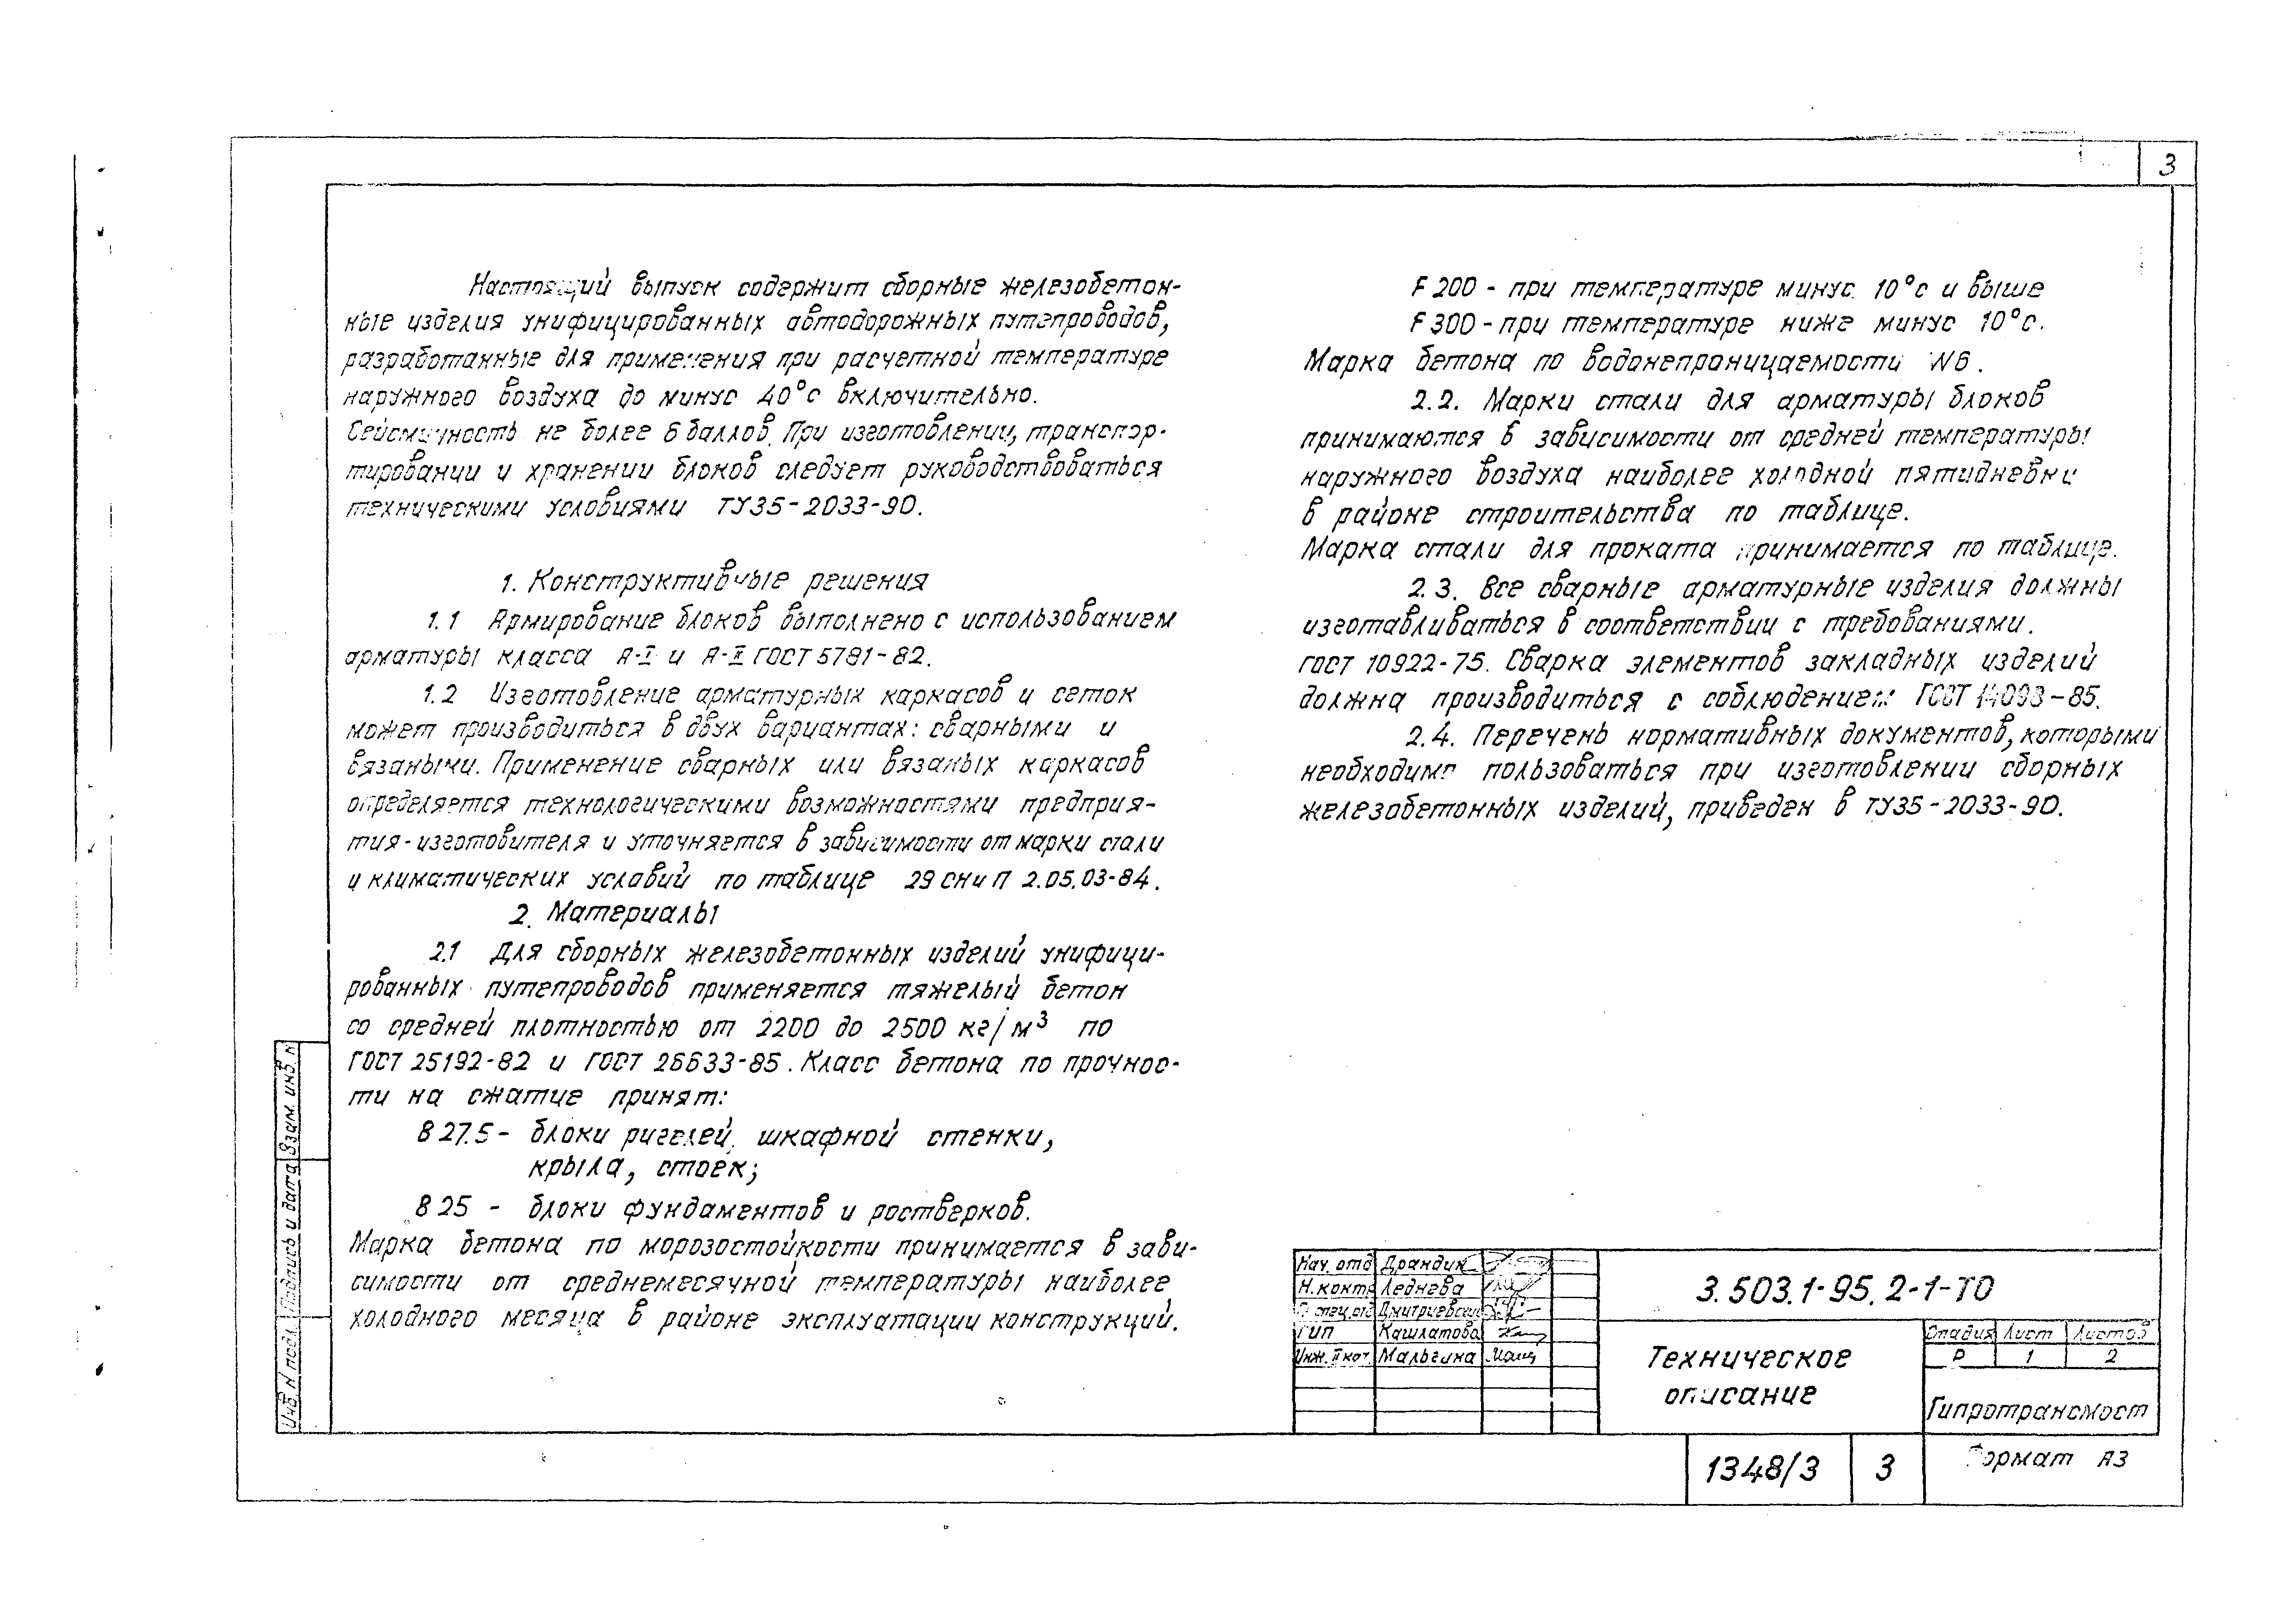 3
Настоящий выпуск содержит сборные железобетон-
ные изделия унифицированных автодорожных путепроводов,
разработанные для применения при расчетной температуре
наружного воздуха до минус 40°с включительно.
Сейсмичность не более 6 баллов. При изготовлении, транспор-
тировании и хранении блоков следует руководствоваться
техническими условиями ТУ35-2033-90.
1. Конструктивные решения
1.1 Армирование блоков выполнено с использованием
арматуры класса А-I и А-II ГОСТ 5781-82.
1.2 Изготовление арматурных каркасов и сеток
может производиться в двух вариантах: сварными и
вязаными. Применение сварных или вязаных каркасов
определяется технологическими возможностями предприя-
тия-изготовителя и уточняется в зависимости от марки стали
и климатических условий по таблице 29 СНиП 2.05.03-84.
2. Материалы
2.1 Для сборных железобетонных изделий унифици-
рованных путепроводов применяется тяжелый бетон
со средней плотностью от 2200 до 2500 кг/м³ по
ГОСТ 25192-82 и ГОСТ 26633-85. Класс бетона по прочнос-
ти на сжатие принят:
В 27.5 - блоки ригелей, шкафной стенки,
крыла, стоек;
В 25 - блоки фундаментов и ростверков.
Марка бетона по морозостойкости принимается в зави-
симости от среднемесячной температуры наиболее
холодного месяца в районе эксплуатации конструкций.
F 200 - при температуре минус 10°с и выше
F 300 - при температуре ниже минус 10°с.
Марка бетона по водонепроницаемости W6.
2.2. Марки стали для арматуры блоков
принимаются в зависимости от средней температуры
наружного воздуха наиболее холодной пятидневки
в районе строительства по таблице.
Марка стали для проката принимается по таблице.
2.3. Все сварные арматурные изделия должны
изготавливаться в соответствии с требованиями.
ГОСТ 10922-75. Сварка элементов закладных изделий
должна производиться с соблюдением ГОСТ 14098-85.
2.4. Перечень нормативных документов, которыми
необходимо пользоваться при изготовлении сборных
железобетонных изделий, приведен в ТУ35-2033-90.
Взам. инв. N
Подпись и дата
Инв. N подл.
Нач. отд Драндин
Н. контр Леднева
спец. отд Дмитриевский
ГИП Кашлатова
Инж. II кат. Мальгина
3.503.1-95.2-1-ТО
Техническое
описание
Стадия Лист Листов
Р 1 2
Гипротрансмост
1348/3 3
Формат А3